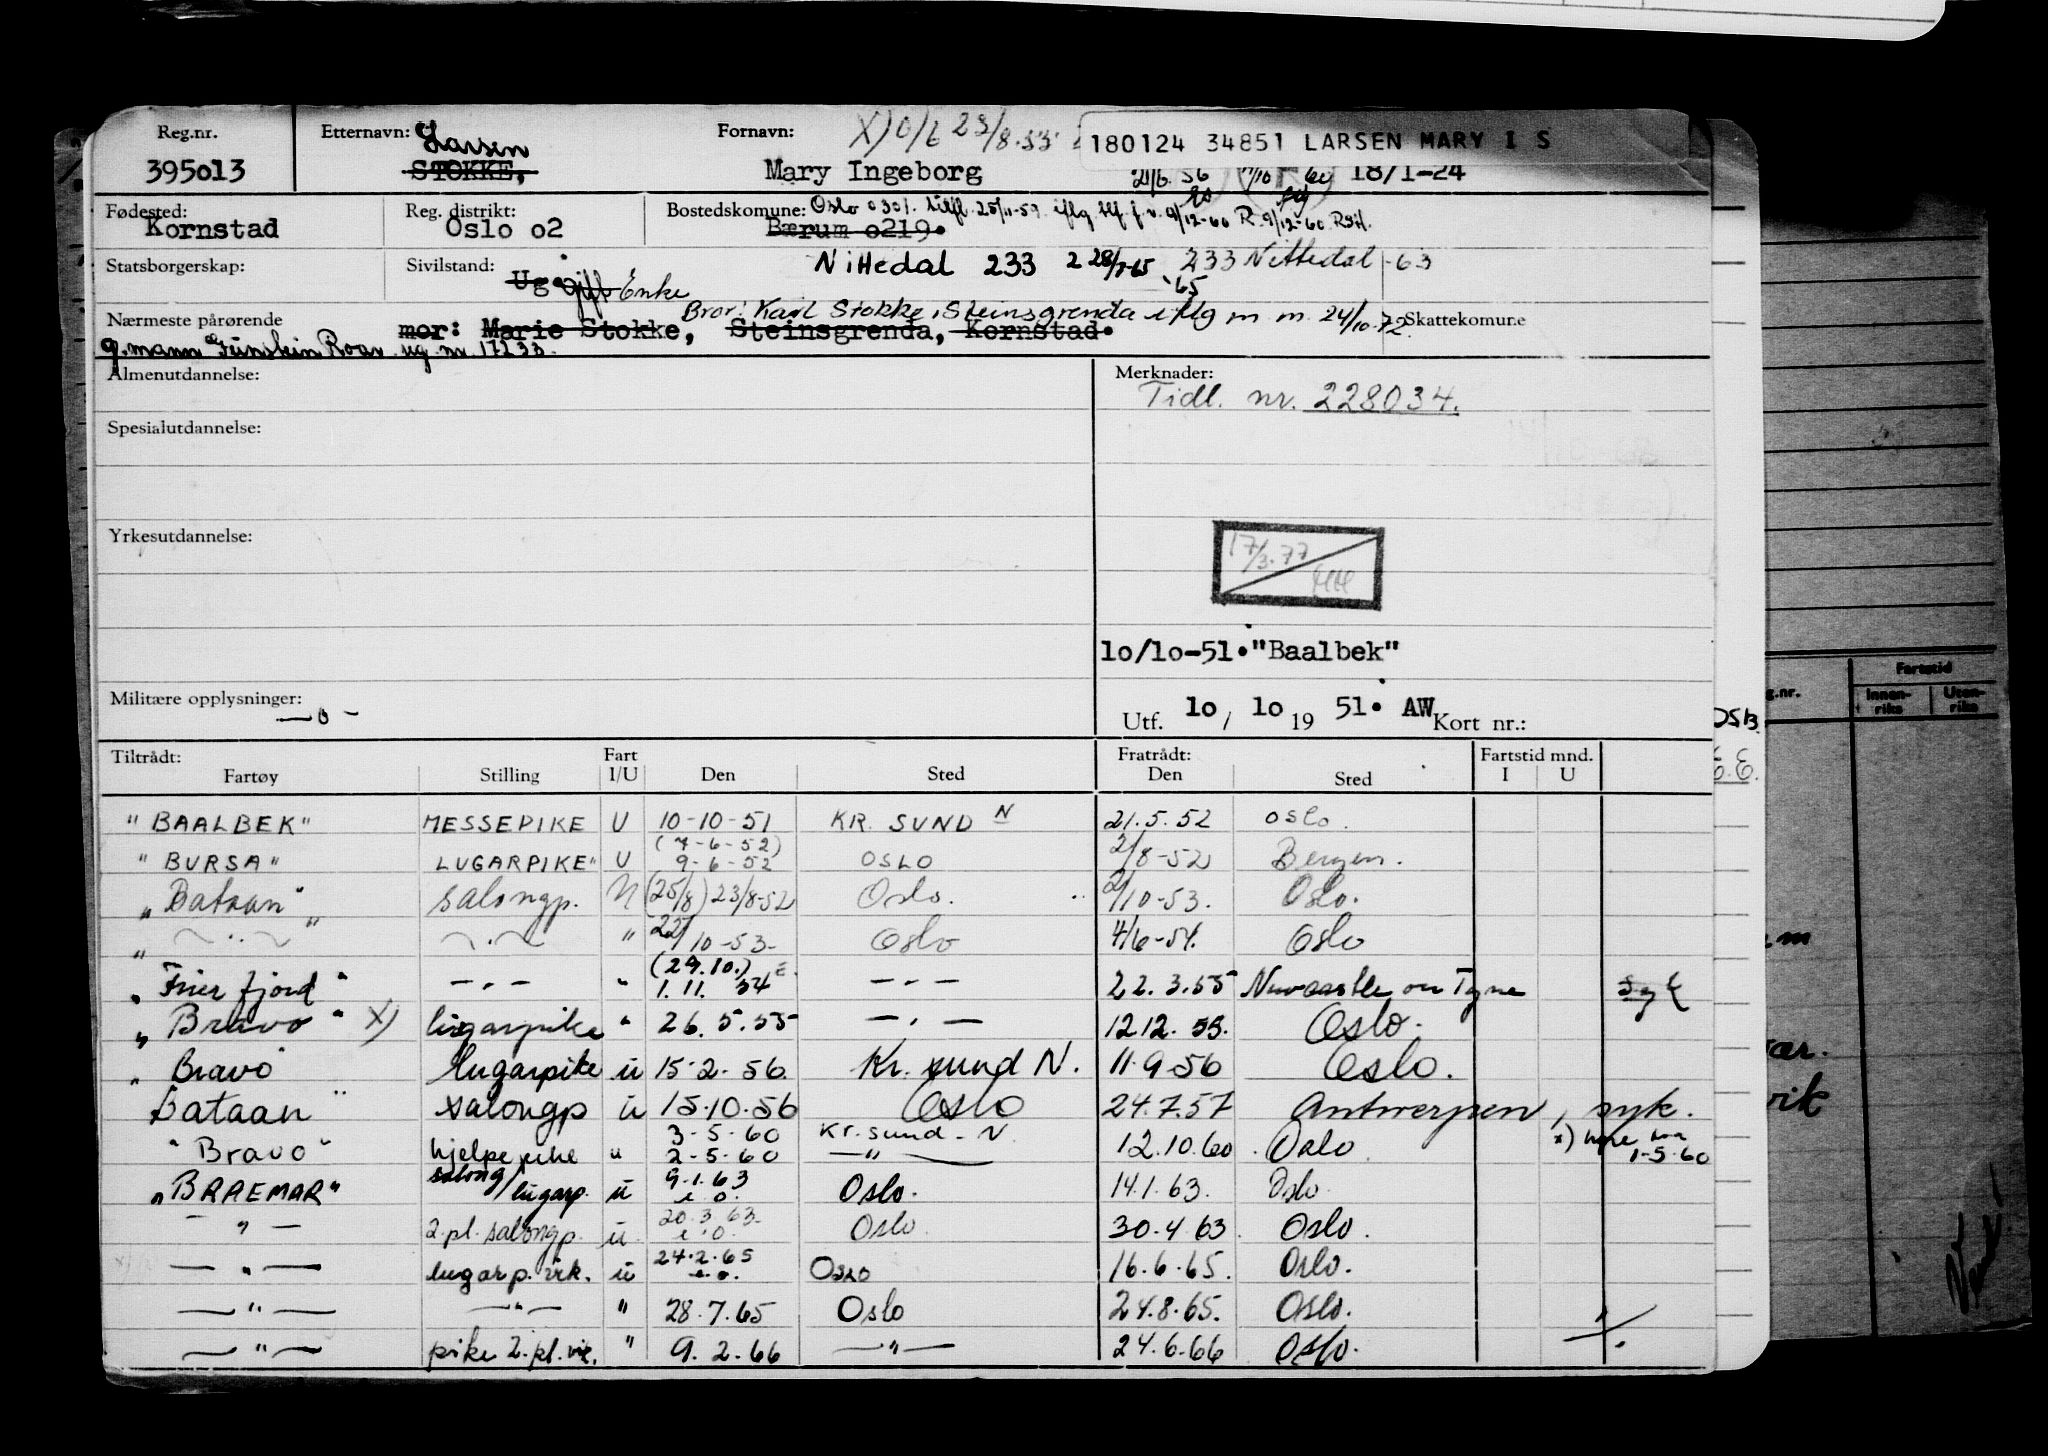 Reg.nr. Etternavn: Larsen Fornavn: X) 23/8-55 180124 34851 LARSEN MARY I S
395013 STOKKE, Mary Ingeborg 18/1-24
Fødested: Reg. distrikt: Bostedskomune: Oslo 0301. 25/11-59. iflg 9/12-60 R. 9/12-60
Kornstad Oslo 02 Bærum 0219.
Statsborgerskap: Sivilstand: Nittedal 233 2 28/7-65 233 Nittedal -63
Ug. gift Enke 65
Bror: Karl Stokke, Steinsgrenda iflg m m. 24/10-72
Nærmeste pårørende mor: Marie Stokke, Steinsgrenda, Kornstad. Skattekomune
g. mann Roar 17233.
Almenutdannelse: Merknader:
Tidl. nr. 228034.
Spesialutdannelse:
Yrkesutdannelse:
17/3-77
HH
10/10-51."Baalbek"
Militære opplysninger: —o—
Utf. 10/10 19 51. AW Kort nr.:
Tiltrådt: Fart Fratrådt: Fartstid mnd.
Fartøy Stilling I/U Den Sted Den Sted I U
"BAALBEK" MESSEPIKE U 10-10-51 KR. SUND N 21.5.52 Oslo.
"BURSA" LUGARPIKE" U (7-6-52) 9-6-52 OSLO 2/8-52 Bergen.
"Bataan" salongp. U (25/8) 23/8-52 Oslo. 2/10-53. Oslo.
" — " — " — " — " 22/10-53- Oslo 4/6-54. Oslo
"Frierfjord" — " — " (29.10.) 1.11. 54 — " — 22.3.55 Newcastle on Tyne syk
"Bravo" X) lugarpike " 26.5.55 — " — 12.12.55. Oslo.
"Bravo" lugarpike u 15-2-56. Kr. sund N. 11-9-56 Oslo.
Bataan " salongp u 15.10.56 Oslo 24.7.57 Antwerpen, syk.
"Bravo" hjelpepike u 3-5-60 2-5-60 Kr. sund - N. — " — 12.10.60 Oslo x) hyre fra 1-5-60
"BRAEMAR" salong/lugarp. u 9.1.63 e.o. Oslo. 14.1.63. Oslo
— " — 2.pl. salongp. u 20.3.63- e.o. Oslo 30.4.63 Oslo.
— " — lugarp. vik. u 24.2.65 e.o. Oslo 16.6.65. Oslo.
— " — — " — " 28.7.65 Oslo 24.8.65. Oslo.
— " — pike 2.pl. vik. " 9.2.66 — " — 24.6.66 Oslo.
g.nr. Fartstid
Innen- riks Uten- riks